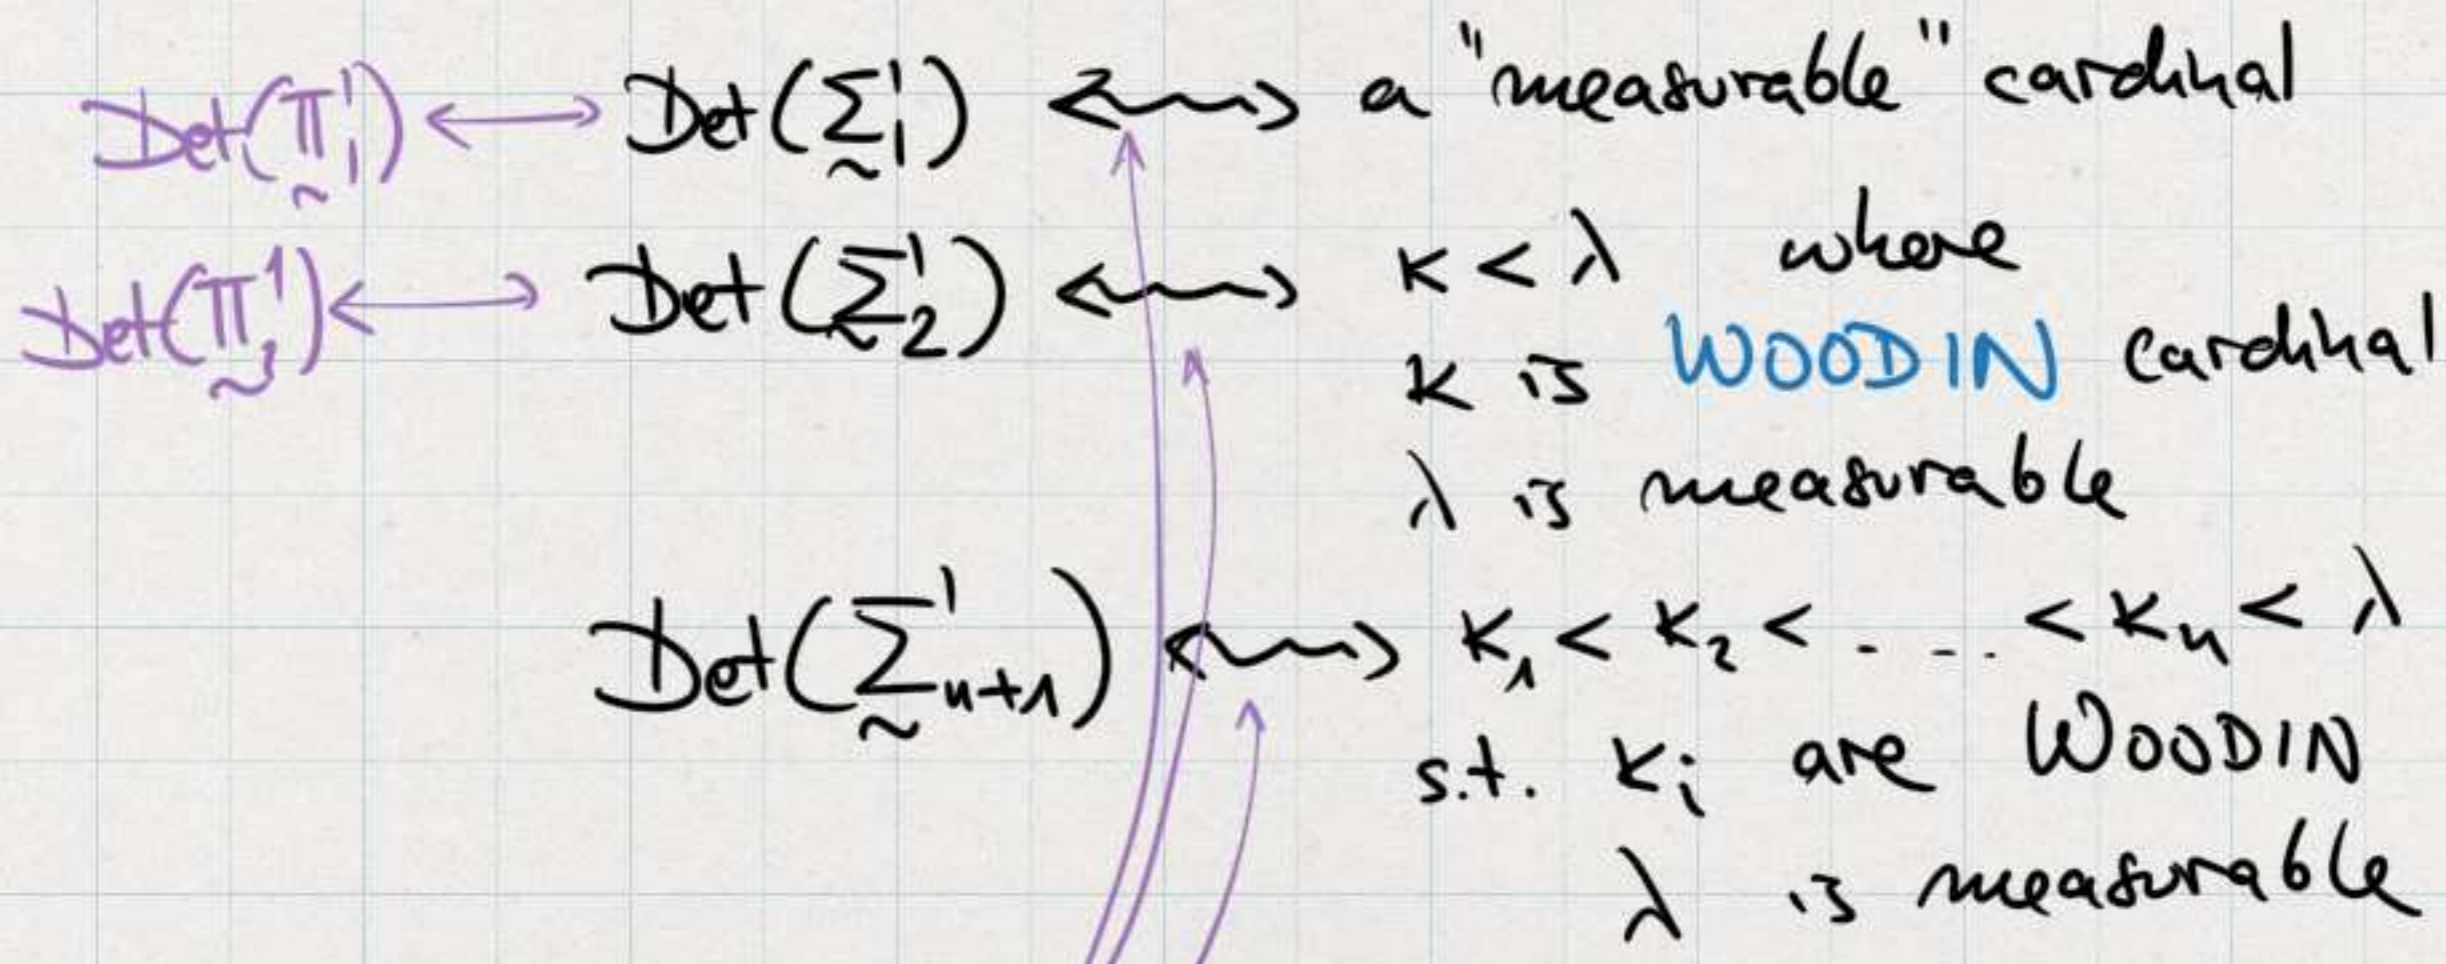 Det(Π̰¹₁) ⟷ Det(Σ̰¹₁) ⟿ a "measurable" cardinal
Det(Π̰¹₂) ⟷ Det(Σ̰¹₂) ⟿ κ < λ where
κ is WOODIN cardinal
λ is measurable
Det(Σ̰¹ₙ₊₁) ⟿ κ₁ < κ₂ < .... < κₙ < λ
s.t. κᵢ are WOODIN
λ is measurable